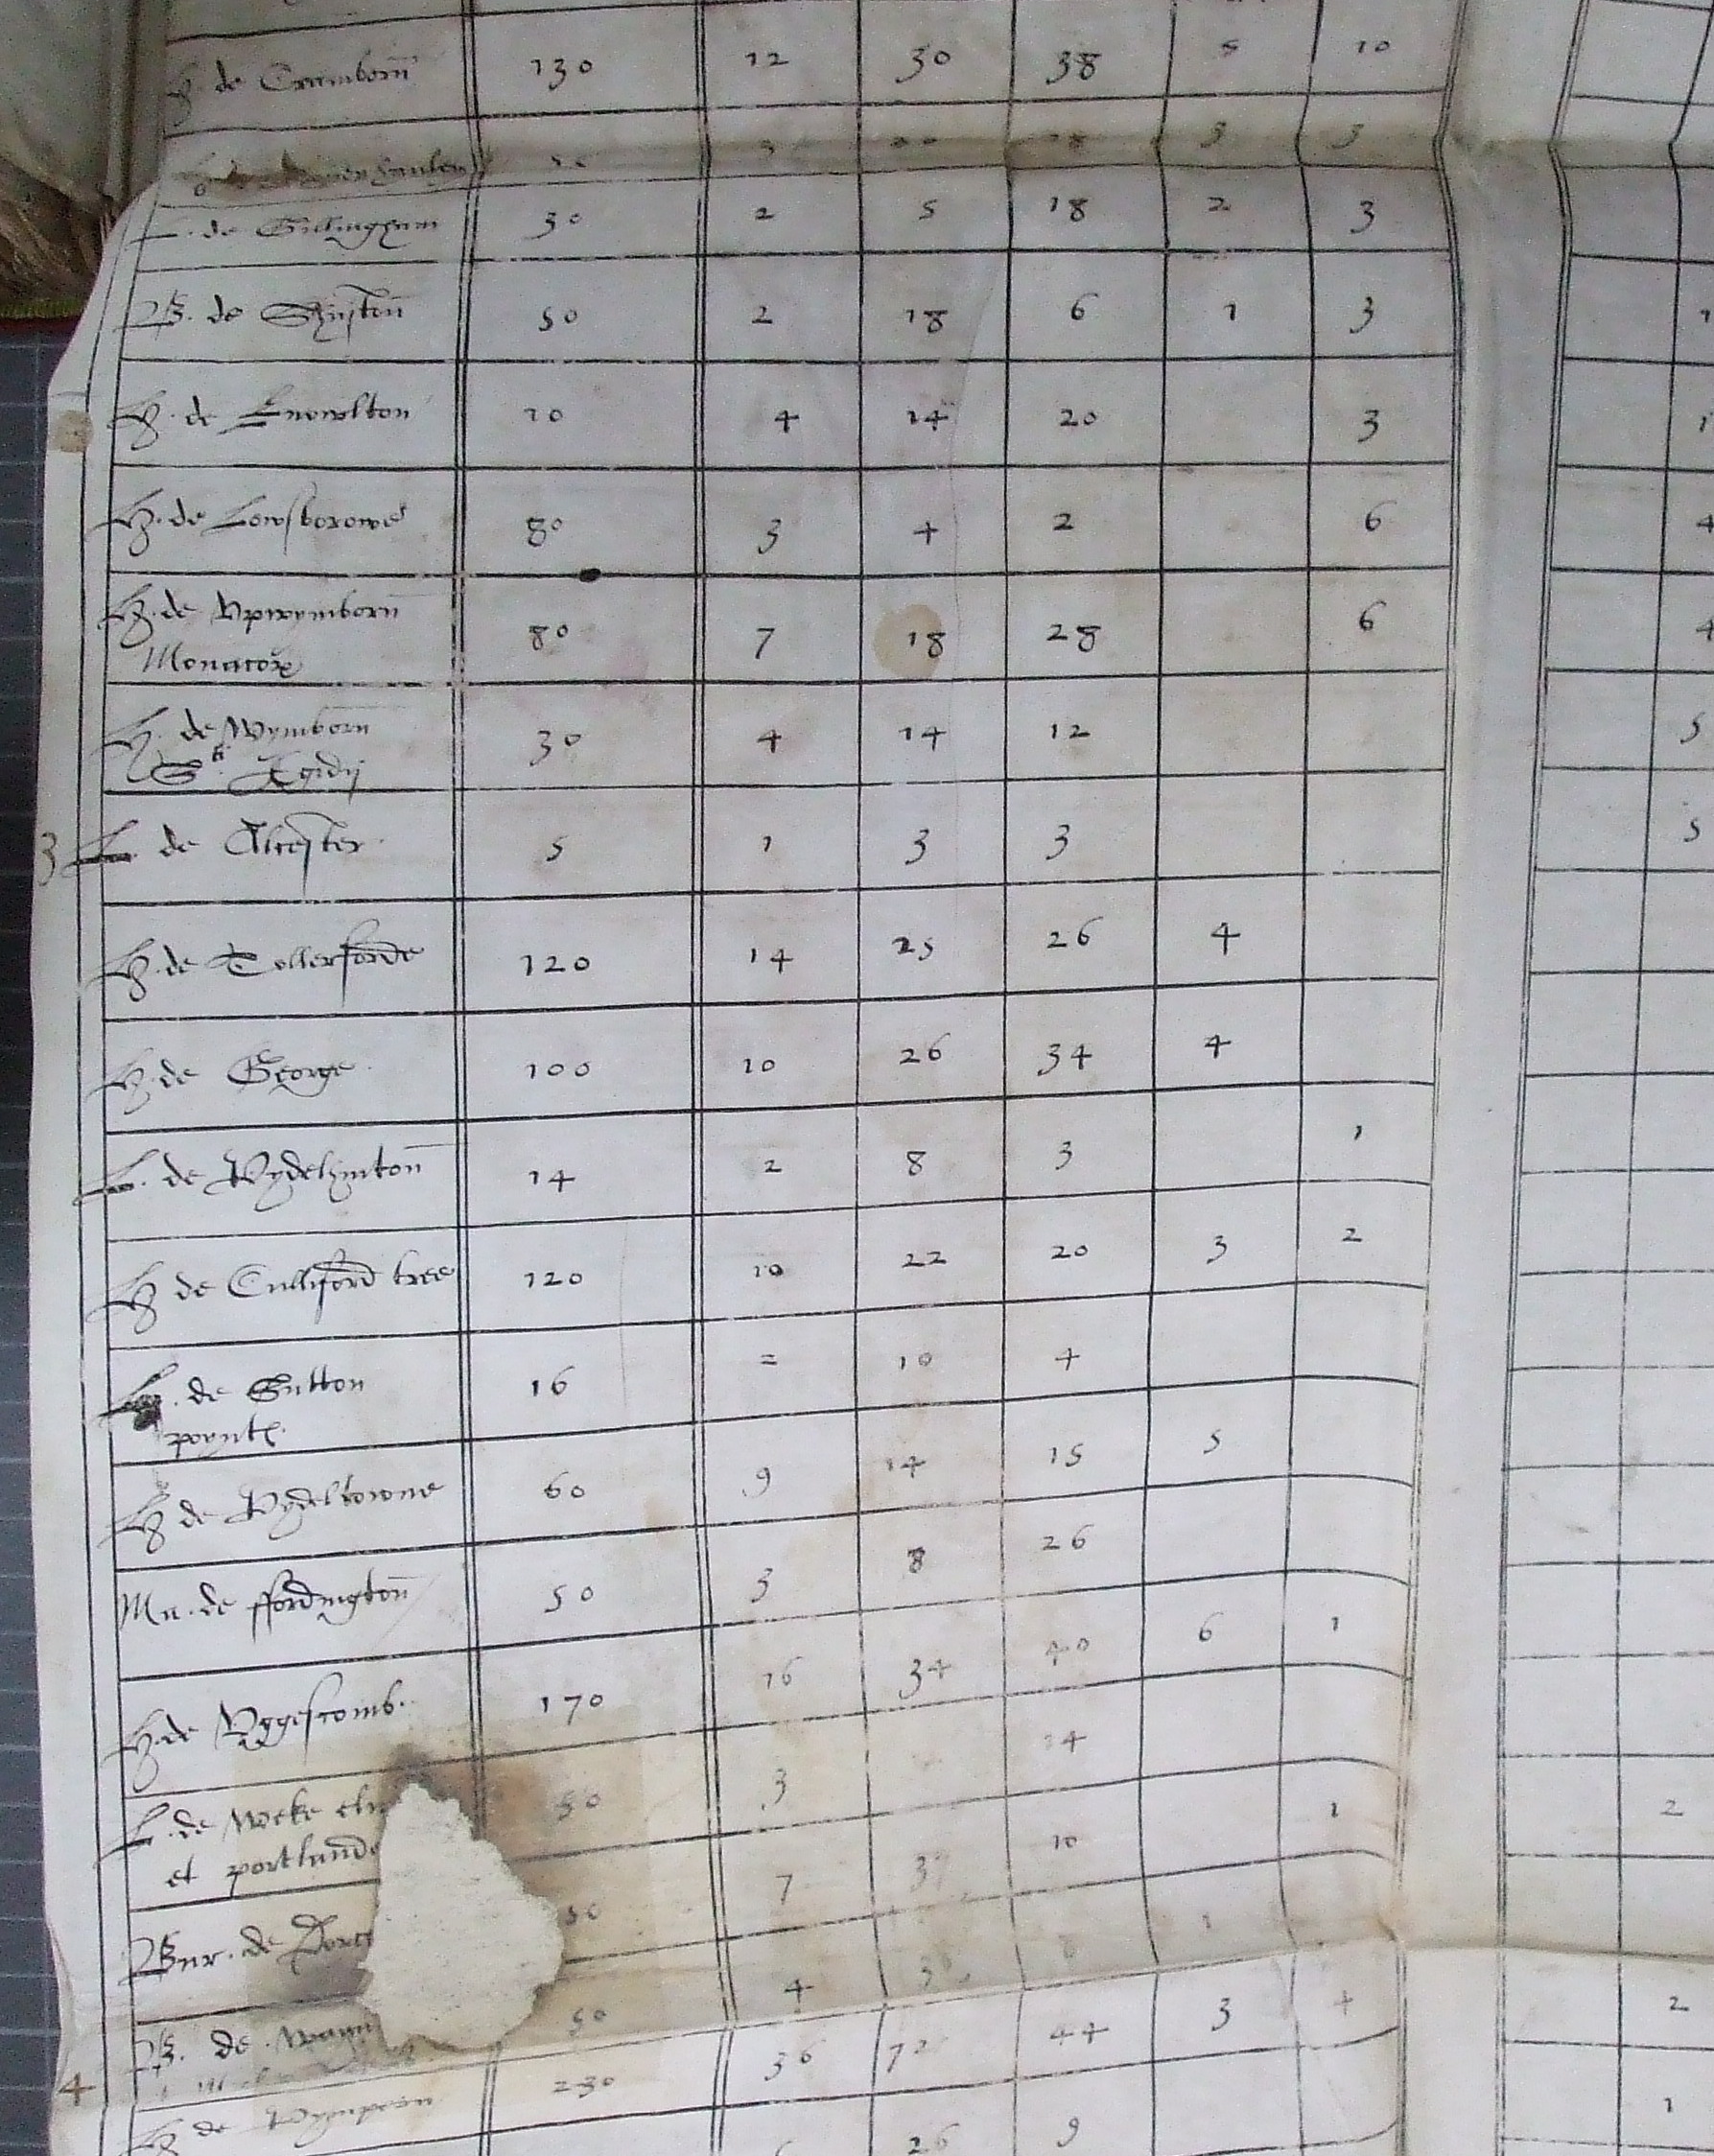 H. de Cramborn 130 12 30 38 5 10
3 3
L. de Gillingham 30 2 5 18 2 3
B. de Shafton 50 2 18 6 1 3
H. de Knowlton 10 4 14 20 3
H. de Lowsborowe 80 3 4 2 6
H. de Upwymborn 80 7 18 28 6
Monacor
H. de Wymborn 30 4 14 12
Sti Egidij
3 L. de Alcester 5 1 3 3
H. de Tollerforde 120 14 25 26 4
H. de George 100 10 26 34 4
L. de Pydelhinton 14 2 8 3 1
H de Culliford tree 120 10 22 20 3 2
L. de Sutton 16 = 10 4
poyntz
H de Pydeltowne 60 9 14 15 5
Ma. de ffordington 50 3 8 26
H. de Uggescomb. 170 16 34 40 6 1
L. de Weke 50 3 14
et portlande
Bur. de 50 7 10 1
B. de 50 4 1
4 H de 230 36 44 3 4
26 9
1
1
4
4
5
5
2
2
1